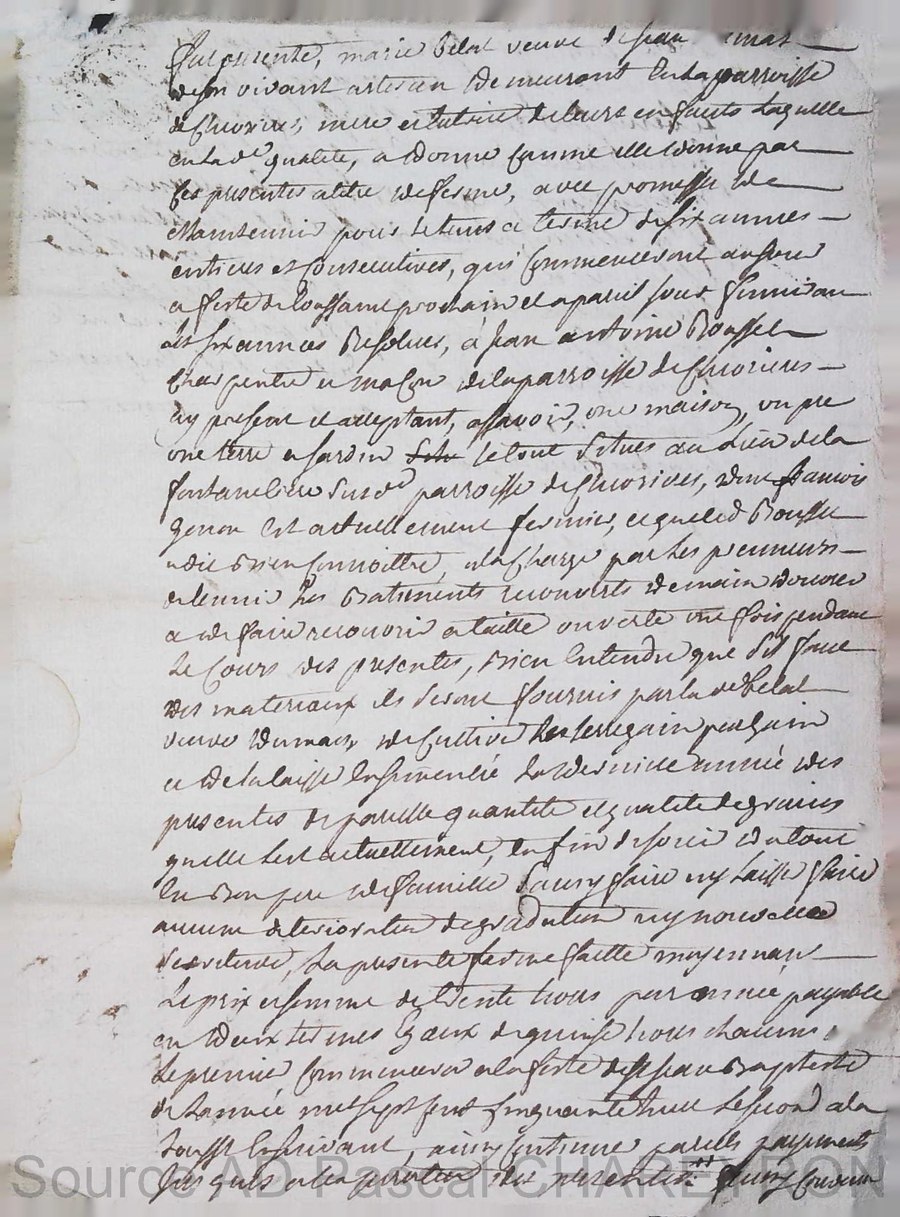 fut presente, marie belat veuve de jean
de son vivant artisan demeurant en la parroisse
de Chioriere, mere et tutrice de leurs enfants laquelle
en la de qualité, a donné comme elle donne par
ces presentes a titre de ferme, avec promesse de
maintenir pour le tems et terme de six années
entieres et consecutives, qui commenceront au jour
et feste de toussaint prochain et a pareil jour finiront
les six années resolues, à jean antoine Roussel
charpentier et maçon de la parroisse de Chiorieres
icy present et acceptant, assavoir, une maison, un pré
une terre et jardin le tout situés au lieu de la
fontaneliere susde parroisse de Chiorieres, dont francois
genon est actuellement fermier, et que led Roussel
a dit bien connoitre, a la charge par les preneurs
de tenir les batiments recouverts de main d'ouvrier
et de faire recouvrir a taille ouverte une fois pendant
le cours des presentes, bien entendu que s'il faut
des materiaux ils seront fournis par la de belat
veuve dumas, de cultiver les terres gain par gain
et de la laisser ensemencée la derniere année des
presentes de pareille quantité et qualité de grains
quelle l'est actuellement, enfin de jouir du tout
en bon pere de famille sans y faire ny laisser faire
aucune deterioration degradation ny nouvelle
servitude, la presente ferme faitte moyennant
le prix et somme de trente livres par année payable
en deux termes egaux de quinse livres chacun,
le premier commencera a la feste de st jean baptiste
de l'année mil sept cent cinquante huit le second a la
touss. en suivant, ainsy continuer pareils payements
jusqu'a l'expiration des presentes
Source AD Pascal CHARETRON